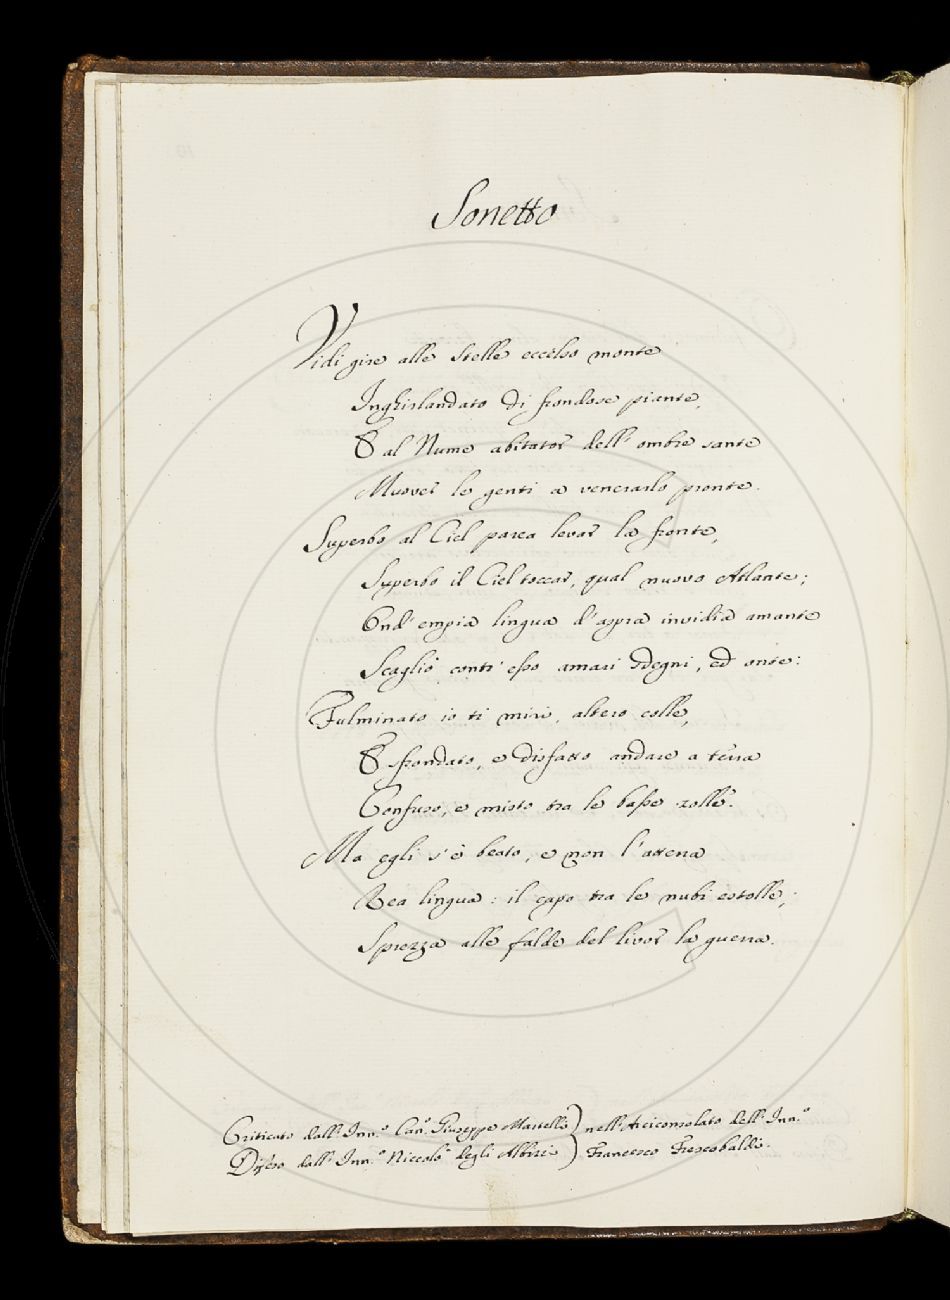 Sonetto
Vidi gire alle Stelle eccelso monte
Inghirlandato di frondose piante,
E al Nume abitator dell' ombre sante
Muover le genti a venerarlo pronte.
Superbo al Ciel parea levar la fronte,
Superbo il Ciel toccar, qual nuovo Atlante;
Ond' empia lingua d'aspra invidia amante
Scagliò contr' esso amari sdegni, ed onte:
Fulminato io ti miri, altero colle,
E sfrondato, e disfatto andare a terra
Confuso, e misto tra le basse zolle.
Ma egli s' è beato, e non l'atterra
Rea lingua: il capo tra le nubi estolle;
Sprezza alle falde del livor la guerra.
Criticato dall' Inn.º Can.º Giuseppe Martelli ) nell' Arciconsolato dell' Inn.º
Difeso dall' Inn.º Niccolò degli Albizi ) Francesco Frescobaldi.